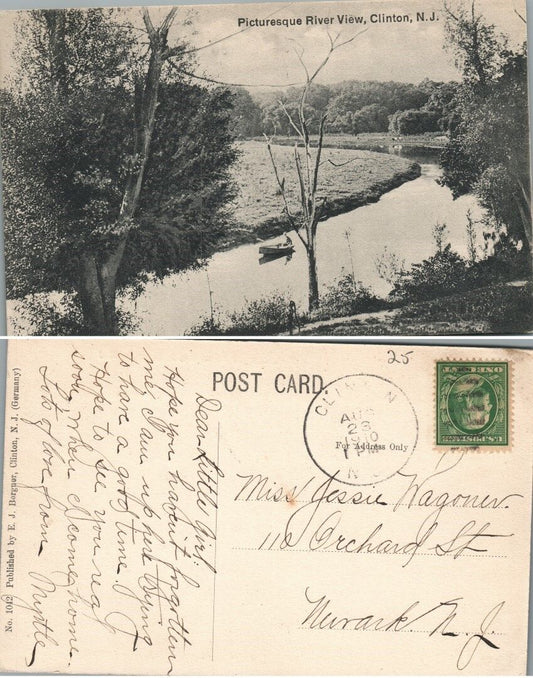 Picturesque River View, Clinton, N.J.
25
POST CARD
CLINTON
AUG
23
1910
N
For Address Only
ONE CENT
U.S.POSTAGE
Miss Jessie Wagoner.
110 Orchard St
Newark N.J.
Dear Little Girl:
Hope you havent forgotten
me, I am up here trying
to have a good time. I
Hope to see you real
soon when I come home.
Lots of love from Myrtle
No. 1042 Published by E. J. Bergner, Clinton, N. J. (Germany)